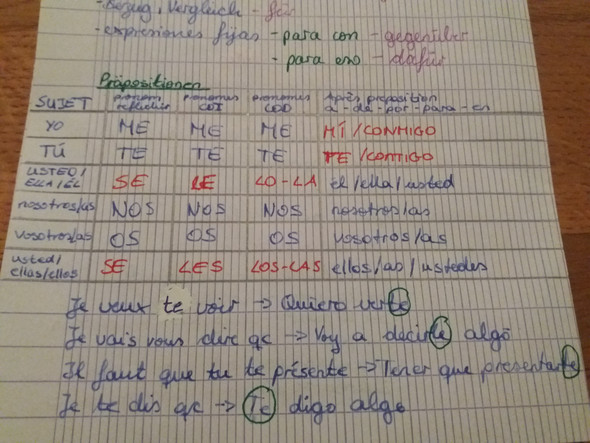 -Bezug, Vergleich - für
-expresiones fijas -para con - gegenüber
-para eso - dafür
Präpositionen
SUJET pronom réfléchir pronoms COI pronoms COD Après preposition a - de - por - para - en
YO ME ME ME MÍ/CONMIGO
TÚ TE TE TE TE/CONTIGO
USTED/ELLA/ÉL SE LE LO-LA él/ella/usted
nosotros/as NOS NOS NOS nosotros/as
vosotros/as OS OS OS vosotros/as
usted/ellas/ellos SE LES LOS-LAS ellos/as/ustedes
Je veux te voir → Quiero verte
Je vais vous dire qc → Voy a decirle algo
Il faut que tu te présente → Tener que presentarte
Je te dis qc → Te digo algo